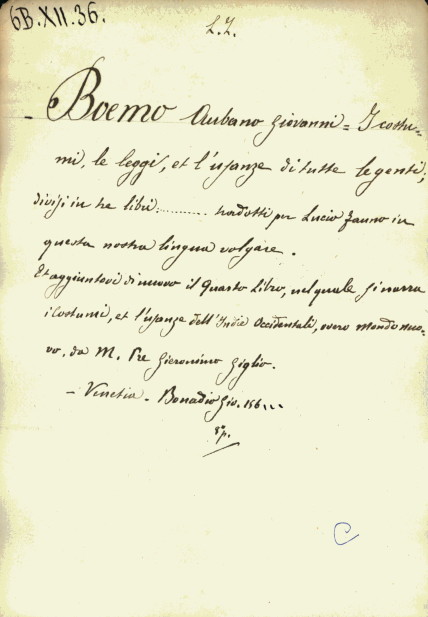 6B.XII.36.
L.I.
- Boemo Aubano Giovanni = I costu-
mi, le leggi, et l'usanze di tutte le genti;
divisi in tre libri .......... tradotti per Lucio Fauno in
questa nostra lingua volgare.
Et aggiuntovi di nuovo il Quarto Libro, nel quale si narra
i Costumi, et l'usanze dell'Indie Occidentali, overo Mondo nuo-
vo, da M. Pre Gieronimo Giglio.
- Venetia - Bonadio Gio. 156...
8º p.
C